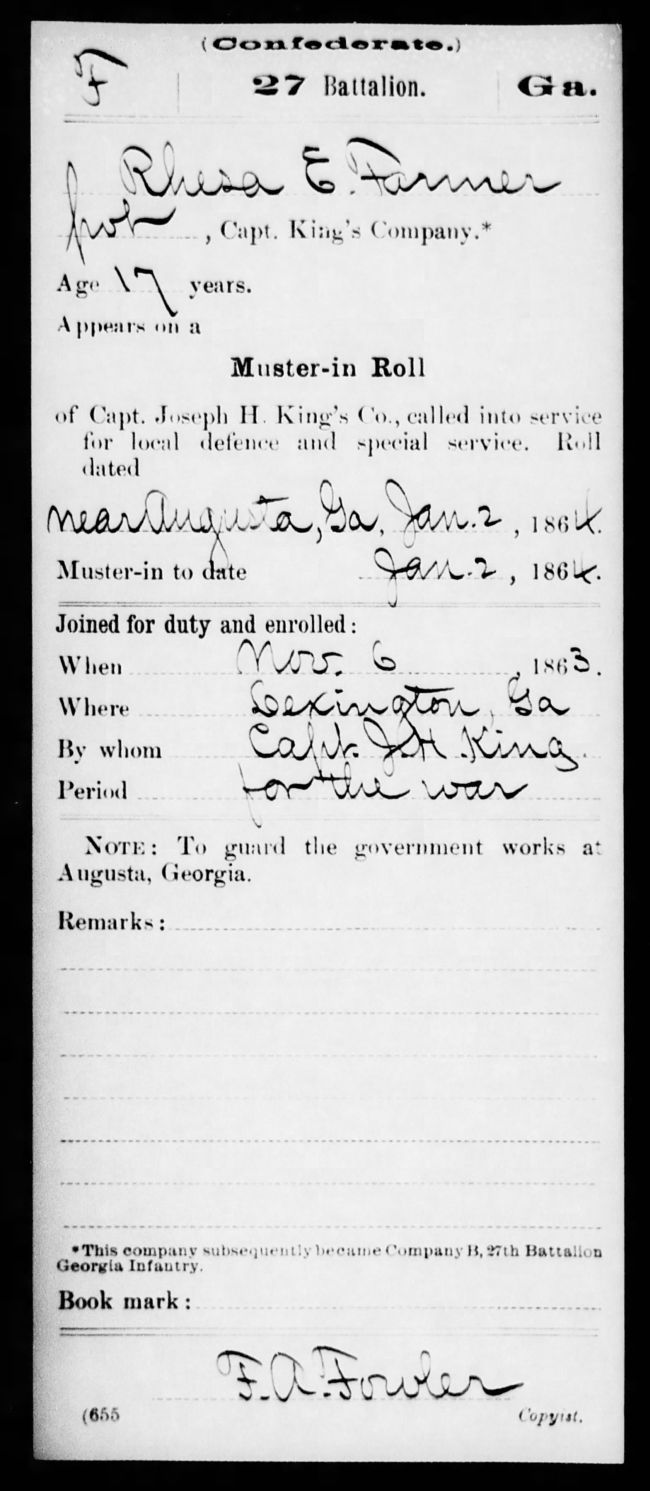 (Confederate.)
F 27 Battalion. Ga.
Rhesa E. Farmer
pvt, Capt. King's Company.*
Age 17 years.
Appears on a
Muster-in Roll
of Capt. Joseph H. King's Co., called into service
for local defence and special service. Roll
dated
near Augusta, Ga, Jan. 2, 1864.
Muster-in to date Jan. 2, 1864.
Joined for duty and enrolled:
When Nov. 6, 1863.
Where Lexington, Ga
By whom Capt. J H King.
Period for the war
NOTE: To guard the government works at
Augusta, Georgia.
Remarks:
*This company subsequently became Company B, 27th Battalion
Georgia Infantry.
Book mark:
F. A. Fowler
(655 Copyist.